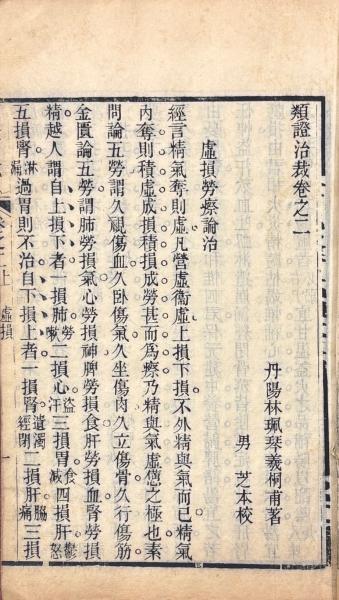 類證治裁卷之二
丹陽林珮琴羲桐甫著
男芝本校
虛損勞瘵論治
經言精氣奪則虛凡營虛衞虛上損下損不外精與氣而已精氣
內奪則積虛成損積損成勞甚而為瘵乃精與氣虛憊之極也素
問論五勞謂久視傷血久臥傷氣久坐傷肉久立傷骨久行傷筋
金匱論五勞謂肺勞損氣心勞損神脾勞損食肝勞損血腎勞損
精越人謂自上損下者一損肺勞嗽二損心盜汗三損胃食減四損肝鬱怒
五損腎淋漏過胃則不治自下損上者一損腎遺濁經閉二損肝脇痛三損
卷之二上
虛損